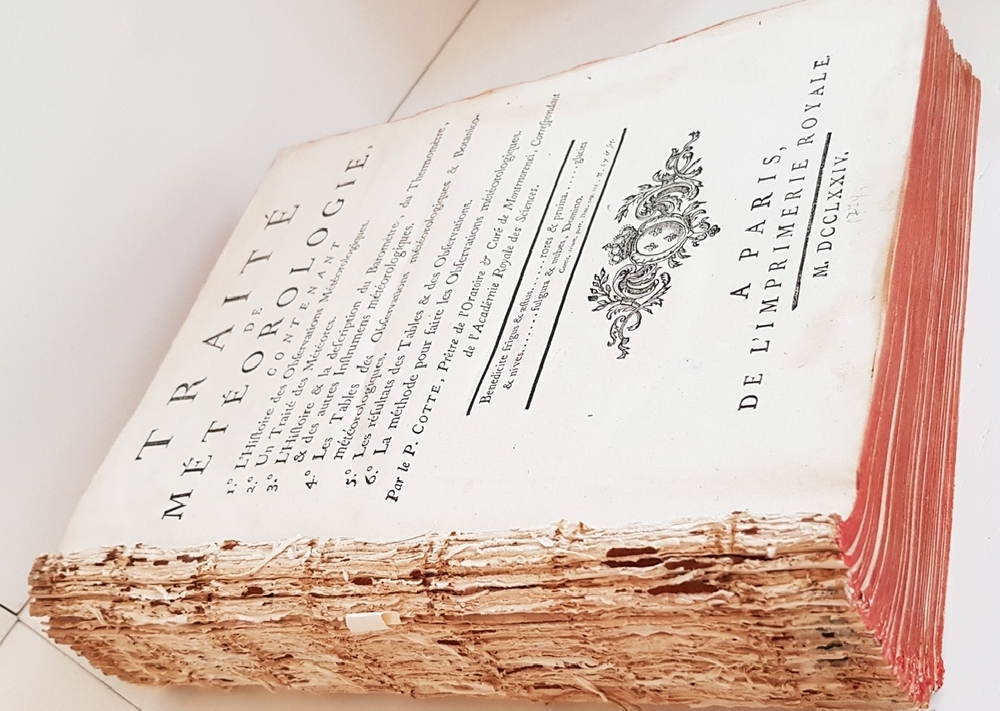 TRAITÉ
DE
MÉTÉOROLOGIE,
CONTENANT
1.º L'Hiſtoire des Obſervations Météorologiques.
2.º Un Traité des Météores.
3.º L'Hiſtoire & la deſcription du Baromètre, du Thermomètre,
& des autres Inſtrumens météorologiques.
4.º Les Tables des Obſervations météorologiques & Botanico-
météorologiques.
5.º Les réſultats des Tables & des Obſervations.
6.º La méthode pour faire les Obſervations météorologiques.
Par le P. COTTE, Prêtre de l'Oratoire & Curé de Montmorenci, Correſpondant
de l'Académie Royale des Sciences.
Benedicite frigus & æſtus..... rores & pruina..... glacies
& nives..... fulgura & nubes, Domino.
A PARIS,
DE L'IMPRIMERIE ROYALE.
M. DCCLXXIV.